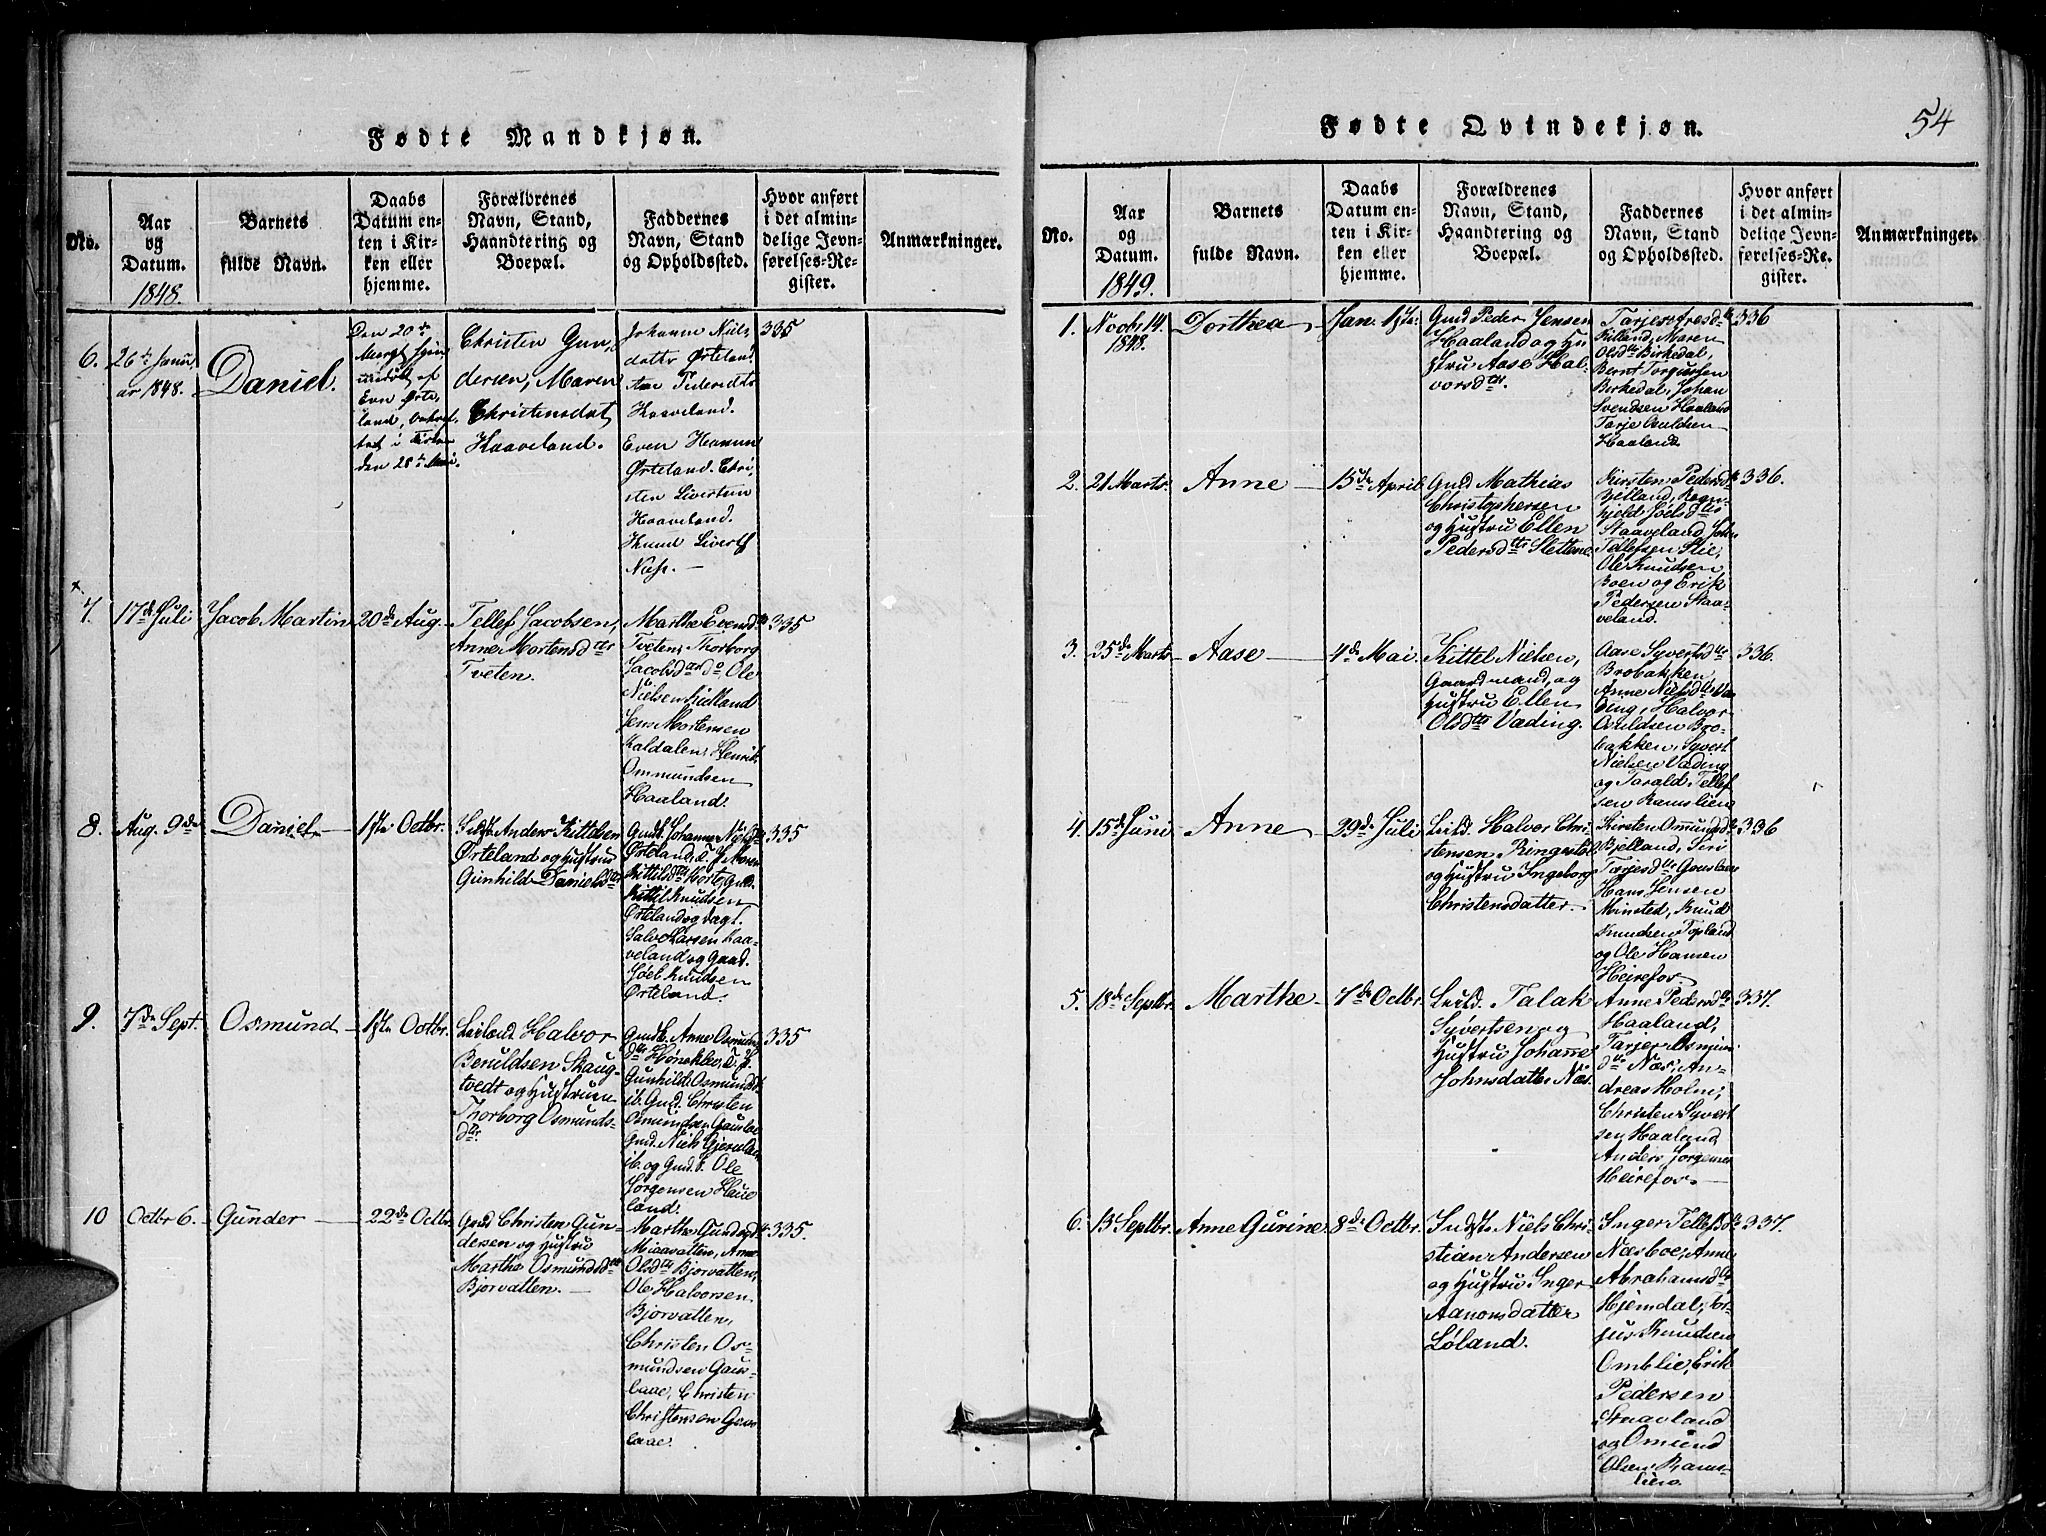 Fødte Mandkjøn.
No.
Aar
og
Datum.
1848.
Barnets
fulde Navn.
Daabs
Datum en-
ten i Kir-
ken eller
hjemme.
Forældrenes
Navn, Stand,
Haandtering og
Boepæl.
Faddernes
Navn, Stand
og Opholdssted.
Hvor anført
i det almin-
delige Jevn-
førelses-Re-
gister.
Anmærkninger.
6.
26de Janu
ar 1848.
Daniel.
Den 20de
Marts hjem
medøbt af
Even Ørte
land,
i Kirken
den 28de Mai.
Christen Gun
dersen, Maren
Christensdat
Haaveland.
Johanne Niels
datter Ørteland
Pedersdt
Haaveland.
Even
Ørteland. Chri
sten Sivertsen
Haaveland.
Knud Sivertsen
Næss. —
335
7.
17de Juli
Jacob Martin
20de Aug.
Tellef Jacobsen,
Anne Mortensdtr
Tveten.
Marthe Evensdtr
Tveten, Thorborg
Jacobsdtr do Ole
Nielsen Kidland
Jens Mortensen
Kaldalen, Henrik
Ommundsen
Haaland.
335
8.
Aug. 9de
Daniel
1ste Octbr.
Anders Kittelsen
Ørteland og Hustru
Gunhild Danielsdtr
Johanne
Ørteland,
Kittelsdtr
Kittil Knudsen
Ørteland og
Salve Larsen Haa-
veland og
Joel Knudsen
Ørteland.
335
9.
7de Sept.
Osmund
1ste Octbr.
Leiland Halvor
Beruldsen Skaug-
tvedt og Hustruen
Thorborg Osmunds-
dtr.
Gmdk. Anne Osmunds
dtr
Gunhild Osmundsdt
ib. Gmd. Christen
Osmundsen Gauslaae
Gmd. Niels
ib. og Gmd. S. Ole
Jørgensen Haue
land.
335
10
Octbr 6.
Gunder
22de Octbr
Gmd Christen Gun-
dersen og Hustru
Marthe Osmundsdtr
Bjorvatten. —
Marthe Gundersdtr
Miaavatten, Anne
Olsdtr Bjorvatten,
Ole Halvorsen
Bjorvatten,
Christen Os-
mundsen Gaus-
laae, Christen
Christensen Gaus
laae.
335.
Fødte Qvindekjøn.
54
No.
Aar
og
Datum.
1849.
Barnets
fulde Navn.
Daabs
Datum en-
ten i Kir-
ken eller
hjemme.
Forældrenes
Navn, Stand,
Haandtering og
Boepæl.
Faddernes
Navn, Stand
og Opholdssted.
Hvor anført
i det almin-
delige Jevn-
førelses-Re-
gister.
Anmærkninger.
1.
Novb 14.
1848.
Dorthea
Jan. 1ste
Gmd Peder Jensen
Haaland og Hu
stru Aase Hal-
vorsdtr.
Killand, Maren
Olsdtr Birkedal,
Bernt Torgussen
Birkedal, Johan
Svendsen Haaland
Tarje Aulsen
Haaland.
336
2.
21 Marts
Anne
15de April
Gmd Mathias
Christophersen
og Hustru Ellen
Pedersdtr Slettene
Kirsten Pedersdtr
Bjelland, Ragn-
hild Joelsdtr
Staaveland, John
Tellefsen Slie,
Ole Knudsen
Boen og Erik
Pedersen Staa-
veland.
336.
3.
25de Marts
Aase
4de Mai
Kittel Nielsen,
Gaardmand, og
Hustru Ellen
Olsdtr Væding.
Aase Syvertsdtr
Brobakken,
Anne Nielsdtr Væ
ding, Halvor
Brobakken, Syvert
Nielsen Væding
og Tarald Tellef
sen Ramslien
336.
4.
15de Juni
Anne
29de Juli
Leild. Halvor Chri-
stensen
og Hustru Ingeborg
Christensdatter.
Kirsten Omundsdtr
Bjelland, Siri
Tarjesdtr Gauslaae
Hans Jensen
Minsted, Knud
Knudsen Topland
og Ole Hansen
Heirefos
336
5.
18de Septbr
Marthe
7de Octbr
Leild. Talak
Syvertsen og
Hustru Johanne
Johnsdatter Næs.
Anne Pedersdtr
Haaland,
dtr Næs, An-
dreas Holm,
Christen Syvert
sen Haaland
Anders Jørgensen
Heirefos. —
337.
6.
13 Septbr.
Anne Gurine
8de Octbr.
Indst. Niels Chri
stian Andersen
og Hustru Inger
Aanonsdatter
Løland.
Inger Tellefsdtr
Næsboe, Anne
Abrahamsdtr
Hjemdal, Tor-
jus Knudsen
Omblie, Erik
Pedersen
Staavland
og Omund
Olsen Rams-
lien.
337.